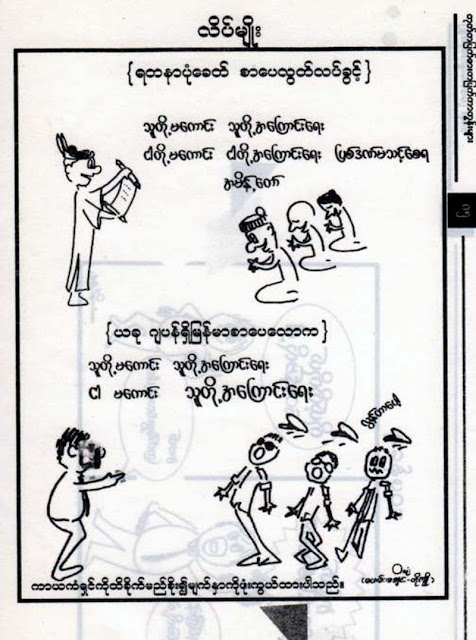 လိပ်မျိုး
{ ရတနာပုံခေတ် စာပေလွတ်လပ်ခွင့် }
သူတို့မကောင်း သူတို့အကြောင်းရေး
ငါတို့မကောင်း ငါတို့အကြောင်းရေး ပြစ်ဒဏ်မသင့်စေရ
အမိန့်တော်
{ ယခု ဂျပန်ရှိမြန်မာစာပေလောက }
သူတို့မကောင်း သူတို့အကြောင်းရေး
ငါ မကောင်း သူတို့အကြောင်းရေး
ကာယကံရှင်ကိုထိခိုက်မည်စိုး၍မျက်နှာကိုဖုံးကွယ်ထားပါသည်။